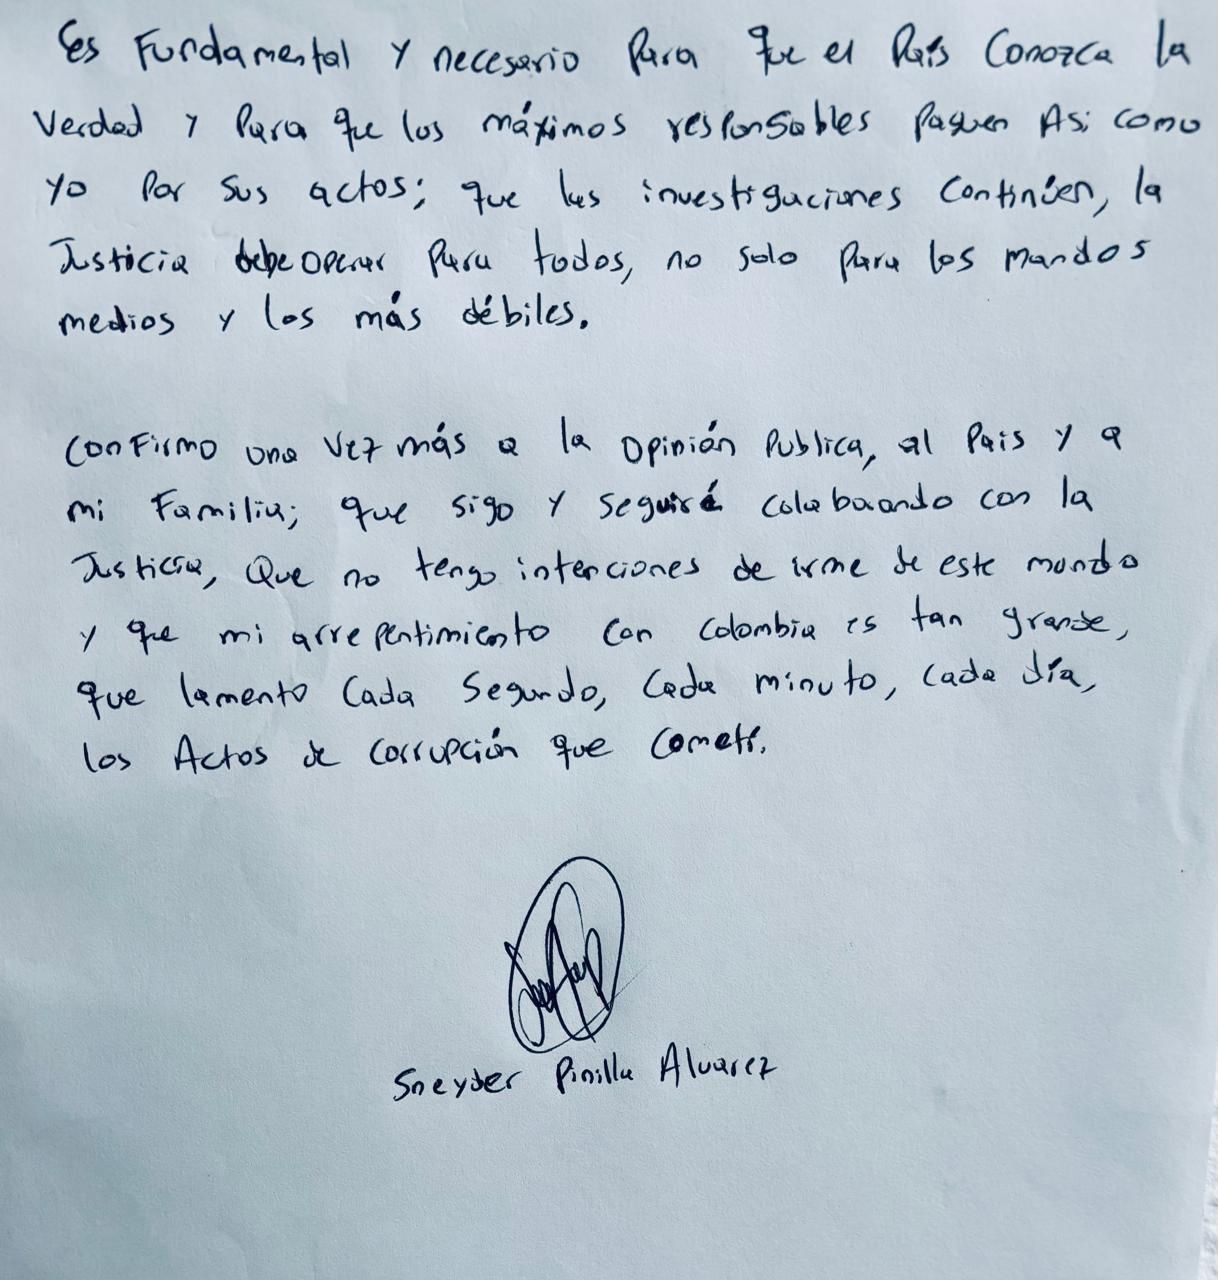 Es Fundamental y necesario Para que el País Conozca la
Verdad y Para que los máximos responsables Paguen Asi como
yo Por sus actos; que las investigaciones Continúen, la
Justicia debe operar Para todos, no solo Para los mandos
medios y los más débiles.
Confirmo una vez más a la Opinión Publica, al Pais y a
mi Familia; que sigo y seguiré colaborando con la
Justicia, Que no tengo intenciones de irme de este mundo
y que mi arrepentimiento con Colombia es tan grande,
que lamento Cada Segundo, Cada minuto, cada día,
los Actos de corrupción que Cometí.
Sneyder Pinilla Alvarez